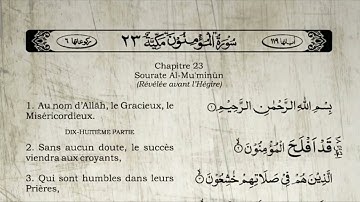 اٰیاتها ۱۱۹
سُوْرَةُ الْمُؤْمِنُوْنَ مَكِّيَّةٌ ٢٣
رکوعاتها ٦
Chapitre 23
Sourate Al-Mu'minūn
(Révélée avant l'Hégire)
1. Au nom d'Allāh, le Gracieux, le
Miséricordieux.
بِسْمِ اللّٰهِ الرَّحْمٰنِ الرَّحِيْمِ
DIX-HUITIÈME PARTIE
2. Sans aucun doute, le succès
viendra aux croyants,
قَدْ اَفْلَحَ الْمُؤْمِنُوْنَ
3. Qui sont humbles dans leurs
Prières,
الَّذِيْنَ هُمْ فِيْ صَلَاتِهِمْ خٰشِعُوْنَ